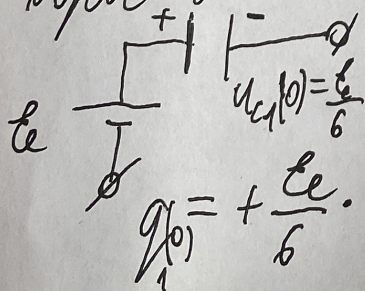 + -
ℰ
U_{C1}(0) = ℰ/6
q_1(0) = + ℰ/6 .